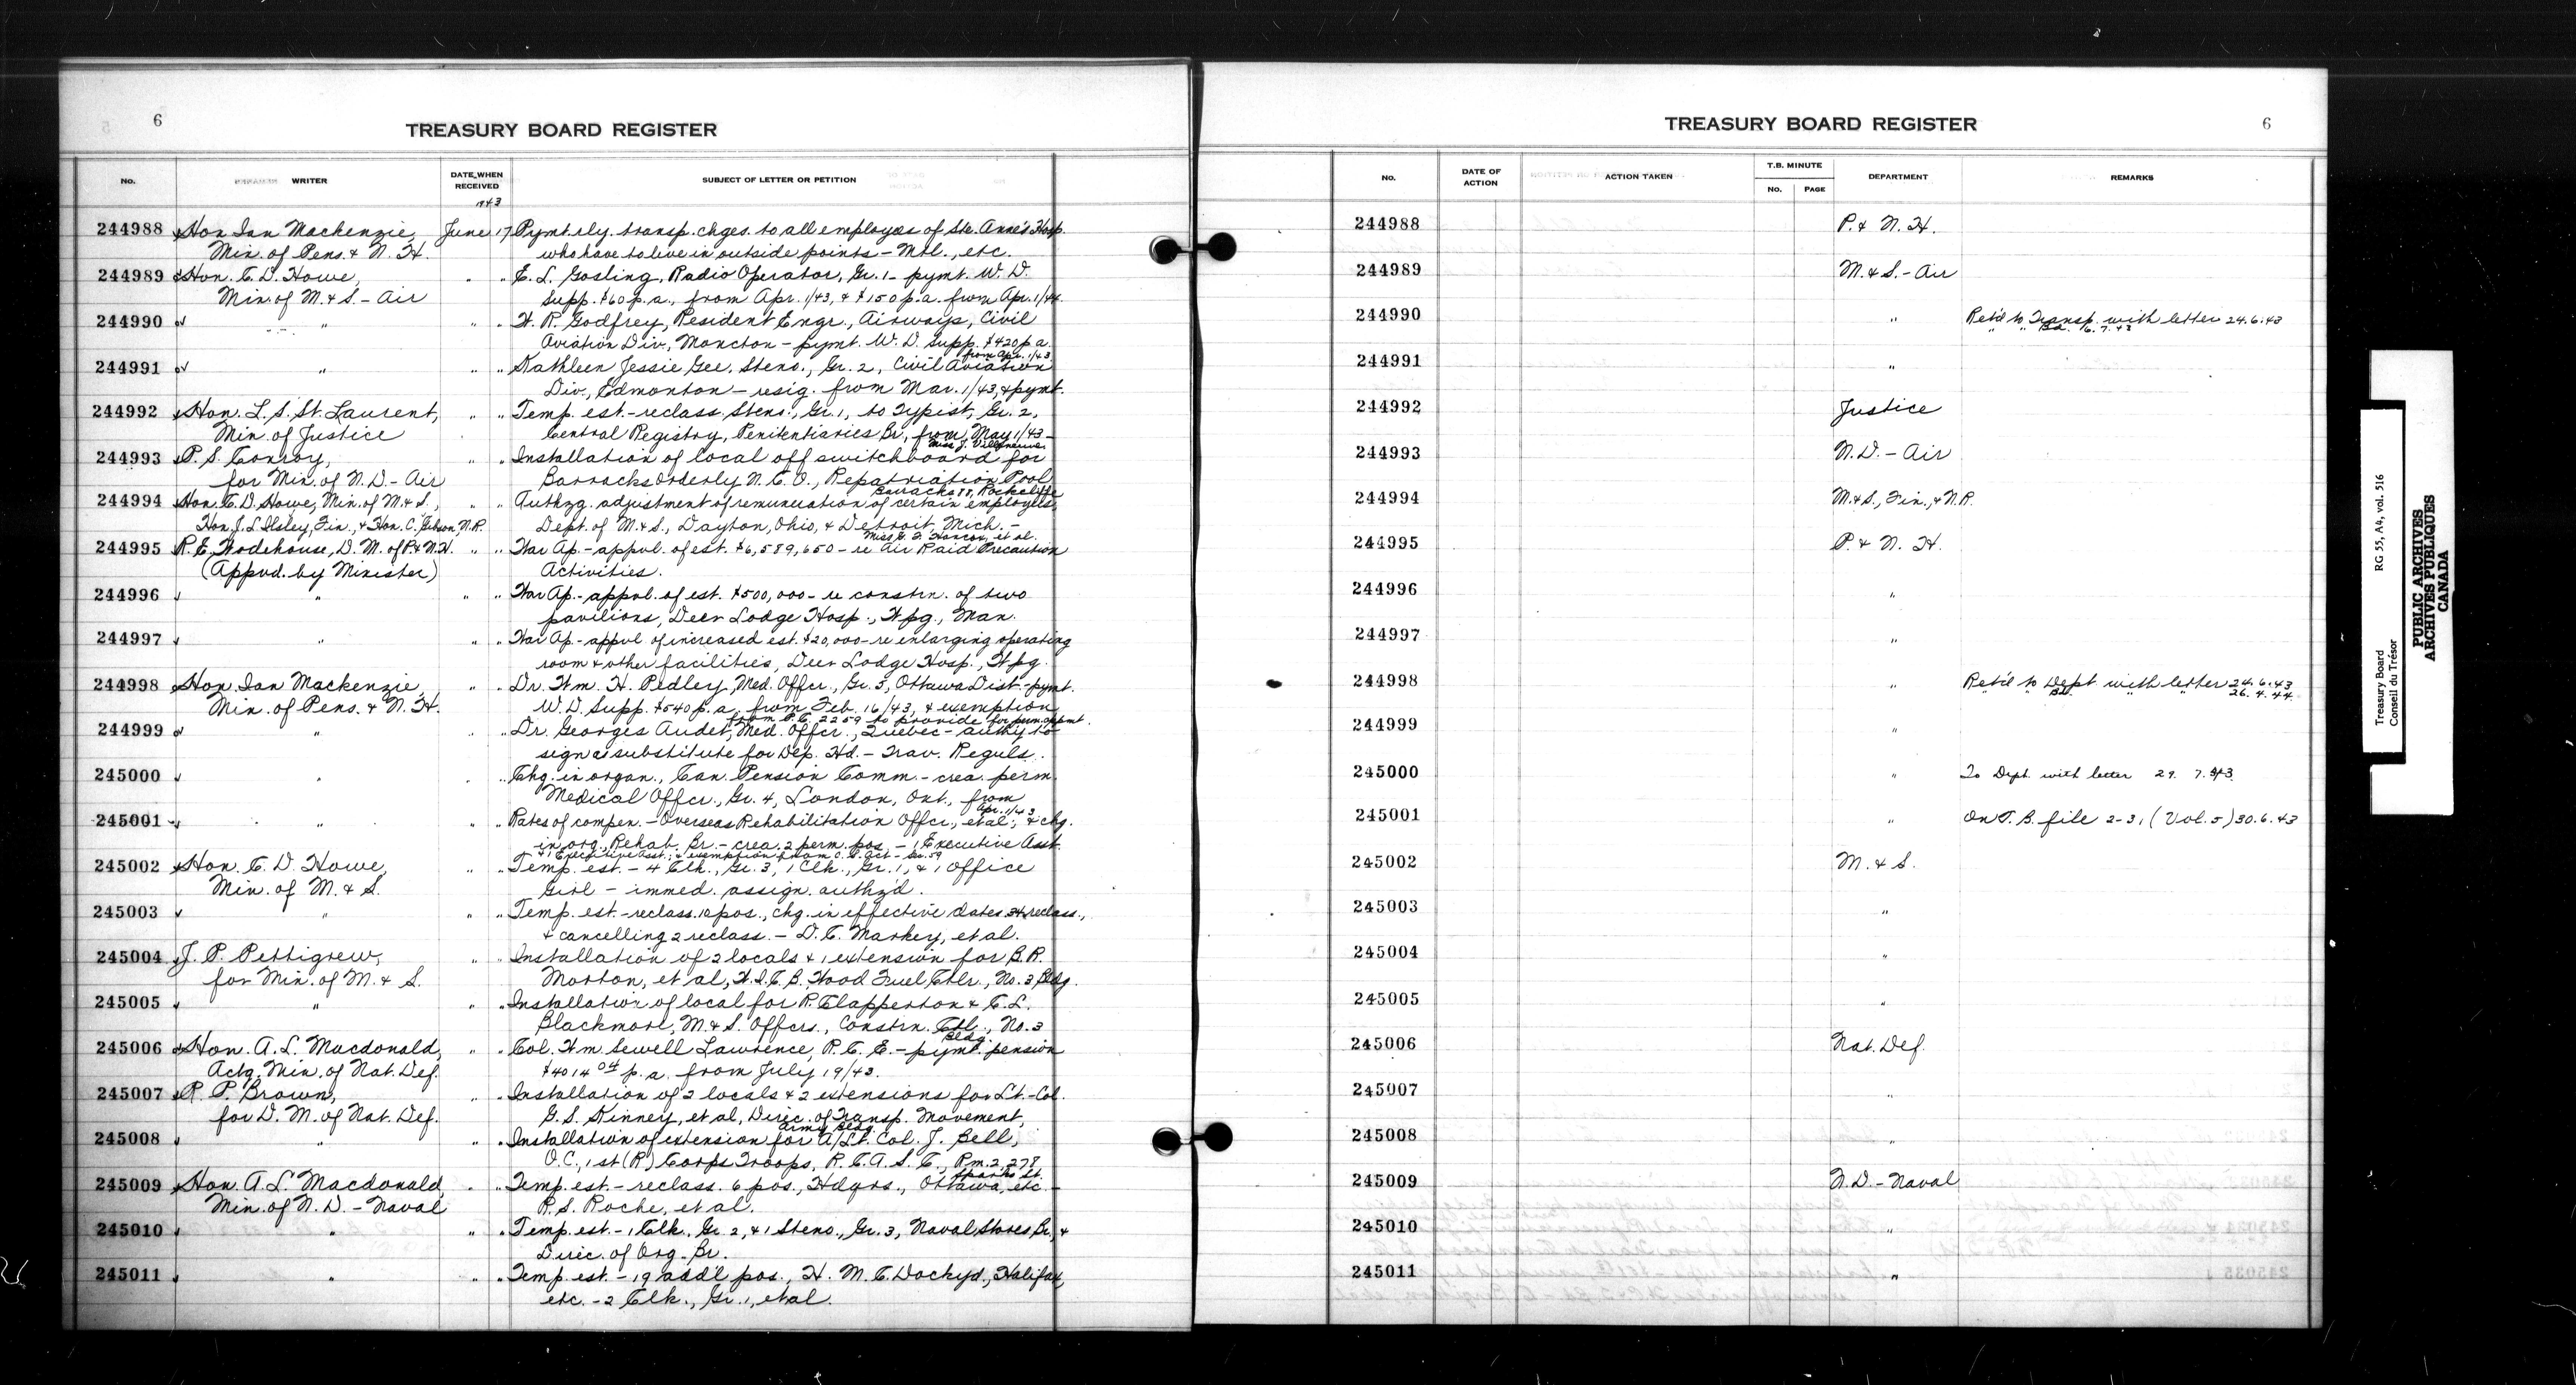 6
TREASURY BOARD REGISTER
No. WRITER DATE WHEN RECEIVED SUBJECT OF LETTER OR PETITION
1943
244988 Hon Ian Mackenzie, June 17 Pymt. rly. transp. chges. to all employees of Ste. Anne's Hosp.
Min. of Pens. & N. H. who have to live in outside points - Mtl., etc.
244989 Hon. C. D. Howe, " " E. L. Gosling, Radio Operator, Gr. 1 - pymt. W. D.
Min. of M. & S. - Air Supp. $60 p.a., from Apr. 1/43, & $150 p.a. from Apr. 1/44
244990 " " " W. R. Godfrey, Resident Engr., Airways, Civil
Aviation Div., Moncton - pymt. W. D. Supp. $420 p.a.
from Apr. 1/43
244991 " " " Kathleen Jessie Gee, Steno., Gr. 2, Civil Aviation
Div., Edmonton - resig. from Mar. 1/43, & pymt.
244992 Hon. L. S. St. Laurent, " " Temp. est. - reclass. Steno., Gr. 1, to Typist, Gr. 2,
Min. of Justice Central Registry, Penitentiaries Br., from May 1/43 -
Miss J. Villeneuve
244993 P. S. Conroy, " " Installation of local off switchboard for
for Min. of N. D. - Air Barracks Orderly N. C. O., Repatriation Pool,
Barracks 88, Rockcliffe
244994 Hon. C. D. Howe, Min. of M. & S., " " Authzg. adjustment of remuneration of certain employees,
Hon. J. L. Ilsley, Fin., & Hon. C. Gibson, N. R. Dept. of M. & S., Dayton, Ohio, & Detroit, Mich. -
et al.
244995 R. E. Wodehouse, D. M. of P. & N. H. " " War Ap. - appvl. of est. $6,589,650 - re Air Raid Precaution
(Appvd. by Minister) Activities.
244996 " " " War Ap. - appvl. of est. $500,000 - re constrn. of two
pavilions, Deer Lodge Hosp., Wpg., Man.
244997 " " " War Ap. - appvl. of increased est. $20,000 - re enlarging operating
room & other facilities, Deer Lodge Hosp., Wpg.
244998 Hon. Ian Mackenzie, " " Dr. Wm. H. Pedley, Med. Offcr., Gr. 5, Ottawa Dist. - pymt.
Min. of Pens. & N. H. W. D. Supp. $540 p.a. from Feb. 16/43, & exemption
from P.C. 2259 to provide for perm. appmt.
244999 " " " Dr. Georges Audet, Med. Offcr., Quebec - authy. to
sign as substitute for Dep. Hd. - Trav. Reguls.
245000 " " " Chg. in organ., Can. Pension Comm. - crea. perm.
Medical Offcr., Gr. 4, London, Ont., from
Apr. 1/43
245001 " " " Rates of compen. - Overseas Rehabilitation Offcr., et al.; & chg.
in org., Rehab. Br. - crea. 2 perm. pos. - 1 Executive Asst.
& 1 Executive Asst.; & exemption from C. S. Act - Sec. 59
245002 Hon. C. D. Howe, " " Temp. est. - 4 Clk., Gr. 3, 1 Clk., Gr. 1, & 1 Office
Min. of M. & S. Girl - immed. assign. authz'd.
245003 " " " Temp. est. - reclass. 10 pos., chg. in effective dates 34 reclass.,
& cancelling 2 reclass. - D. C. Markey, et al.
245004 J. P. Pettigrew, " " Installation of 2 locals & 1 extension for B. R.
for Min. of M. & S. Morton, et al, W. I. T. B. Wood Fuel Ctlr., No. 3 Bldg.
245005 " " " Installation of local for R. Clapperton & C. L.
Blackmore, M. & S. Offcrs., Constrn. Ctl., No. 3
Bldg.
245006 Hon. A. L. Macdonald, " " Col. Wm. Sewell Lawrence, R. C. E. - pymt. pension
Actg. Min. of Nat. Def. $4014.04 p.a. from July 19/43.
245007 R. P. Brown, " " Installation of 2 locals & 2 extensions for Lt.-Col.
for D. M. of Nat. Def. G. S. Kinney, et al, Direc. of Transp. Movement,
Army Bldg.
245008 " " " Installation of extension for A/Lt. Col. J. Bell,
O.C., 1st (R) Corps Troops, R. C. A. S. C., Rm. 2, 278
Sparks St.
245009 Hon. A. L. Macdonald, " " Temp. est. - reclass. 6 pos., Hdqrs., Ottawa, etc. -
Min. of N. D. - Naval R. S. Roche, et al.
245010 " " " Temp. est. - 1 Clk., Gr. 2, & 1 Steno., Gr. 3, Naval Stores Br., &
Direc. of Org. Br.
245011 " " " Temp. est. - 19 addl pos., H. M. C. Dockyd., Halifax,
etc. - 2 Clk., Gr. 1, et al.
TREASURY BOARD REGISTER
6
No. DATE OF ACTION ACTION TAKEN T.B. MINUTE No. PAGE DEPARTMENT REMARKS
244988 P. & N. H.
244989 M. & S. - Air
244990 " Ret'd to Transp. with letter 24.6.43
" " Bd. 6.7.43
244991 "
244992 Justice
244993 N. D. - Air
244994 M. & S., Fin., & N. R.
244995 P. & N. H.
244996 "
244997 "
244998 " Ret'd to Dept. with letter 24.6.43
" " " 26.4.44
244999 "
245000 " To Dept. with letter 29. 7. 43
245001 " On T. B. file 2-31 (Vol. 5) 30.6.43
245002 M. & S.
245003 "
245004 "
245005 "
245006 Nat. Def.
245007 "
245008 "
245009 N. D. - Naval
245010 "
245011 "
Treasury Board RG 55, A4, vol. 516
Conseil du Trésor
PUBLIC ARCHIVES
ARCHIVES PUBLIQUES
CANADA